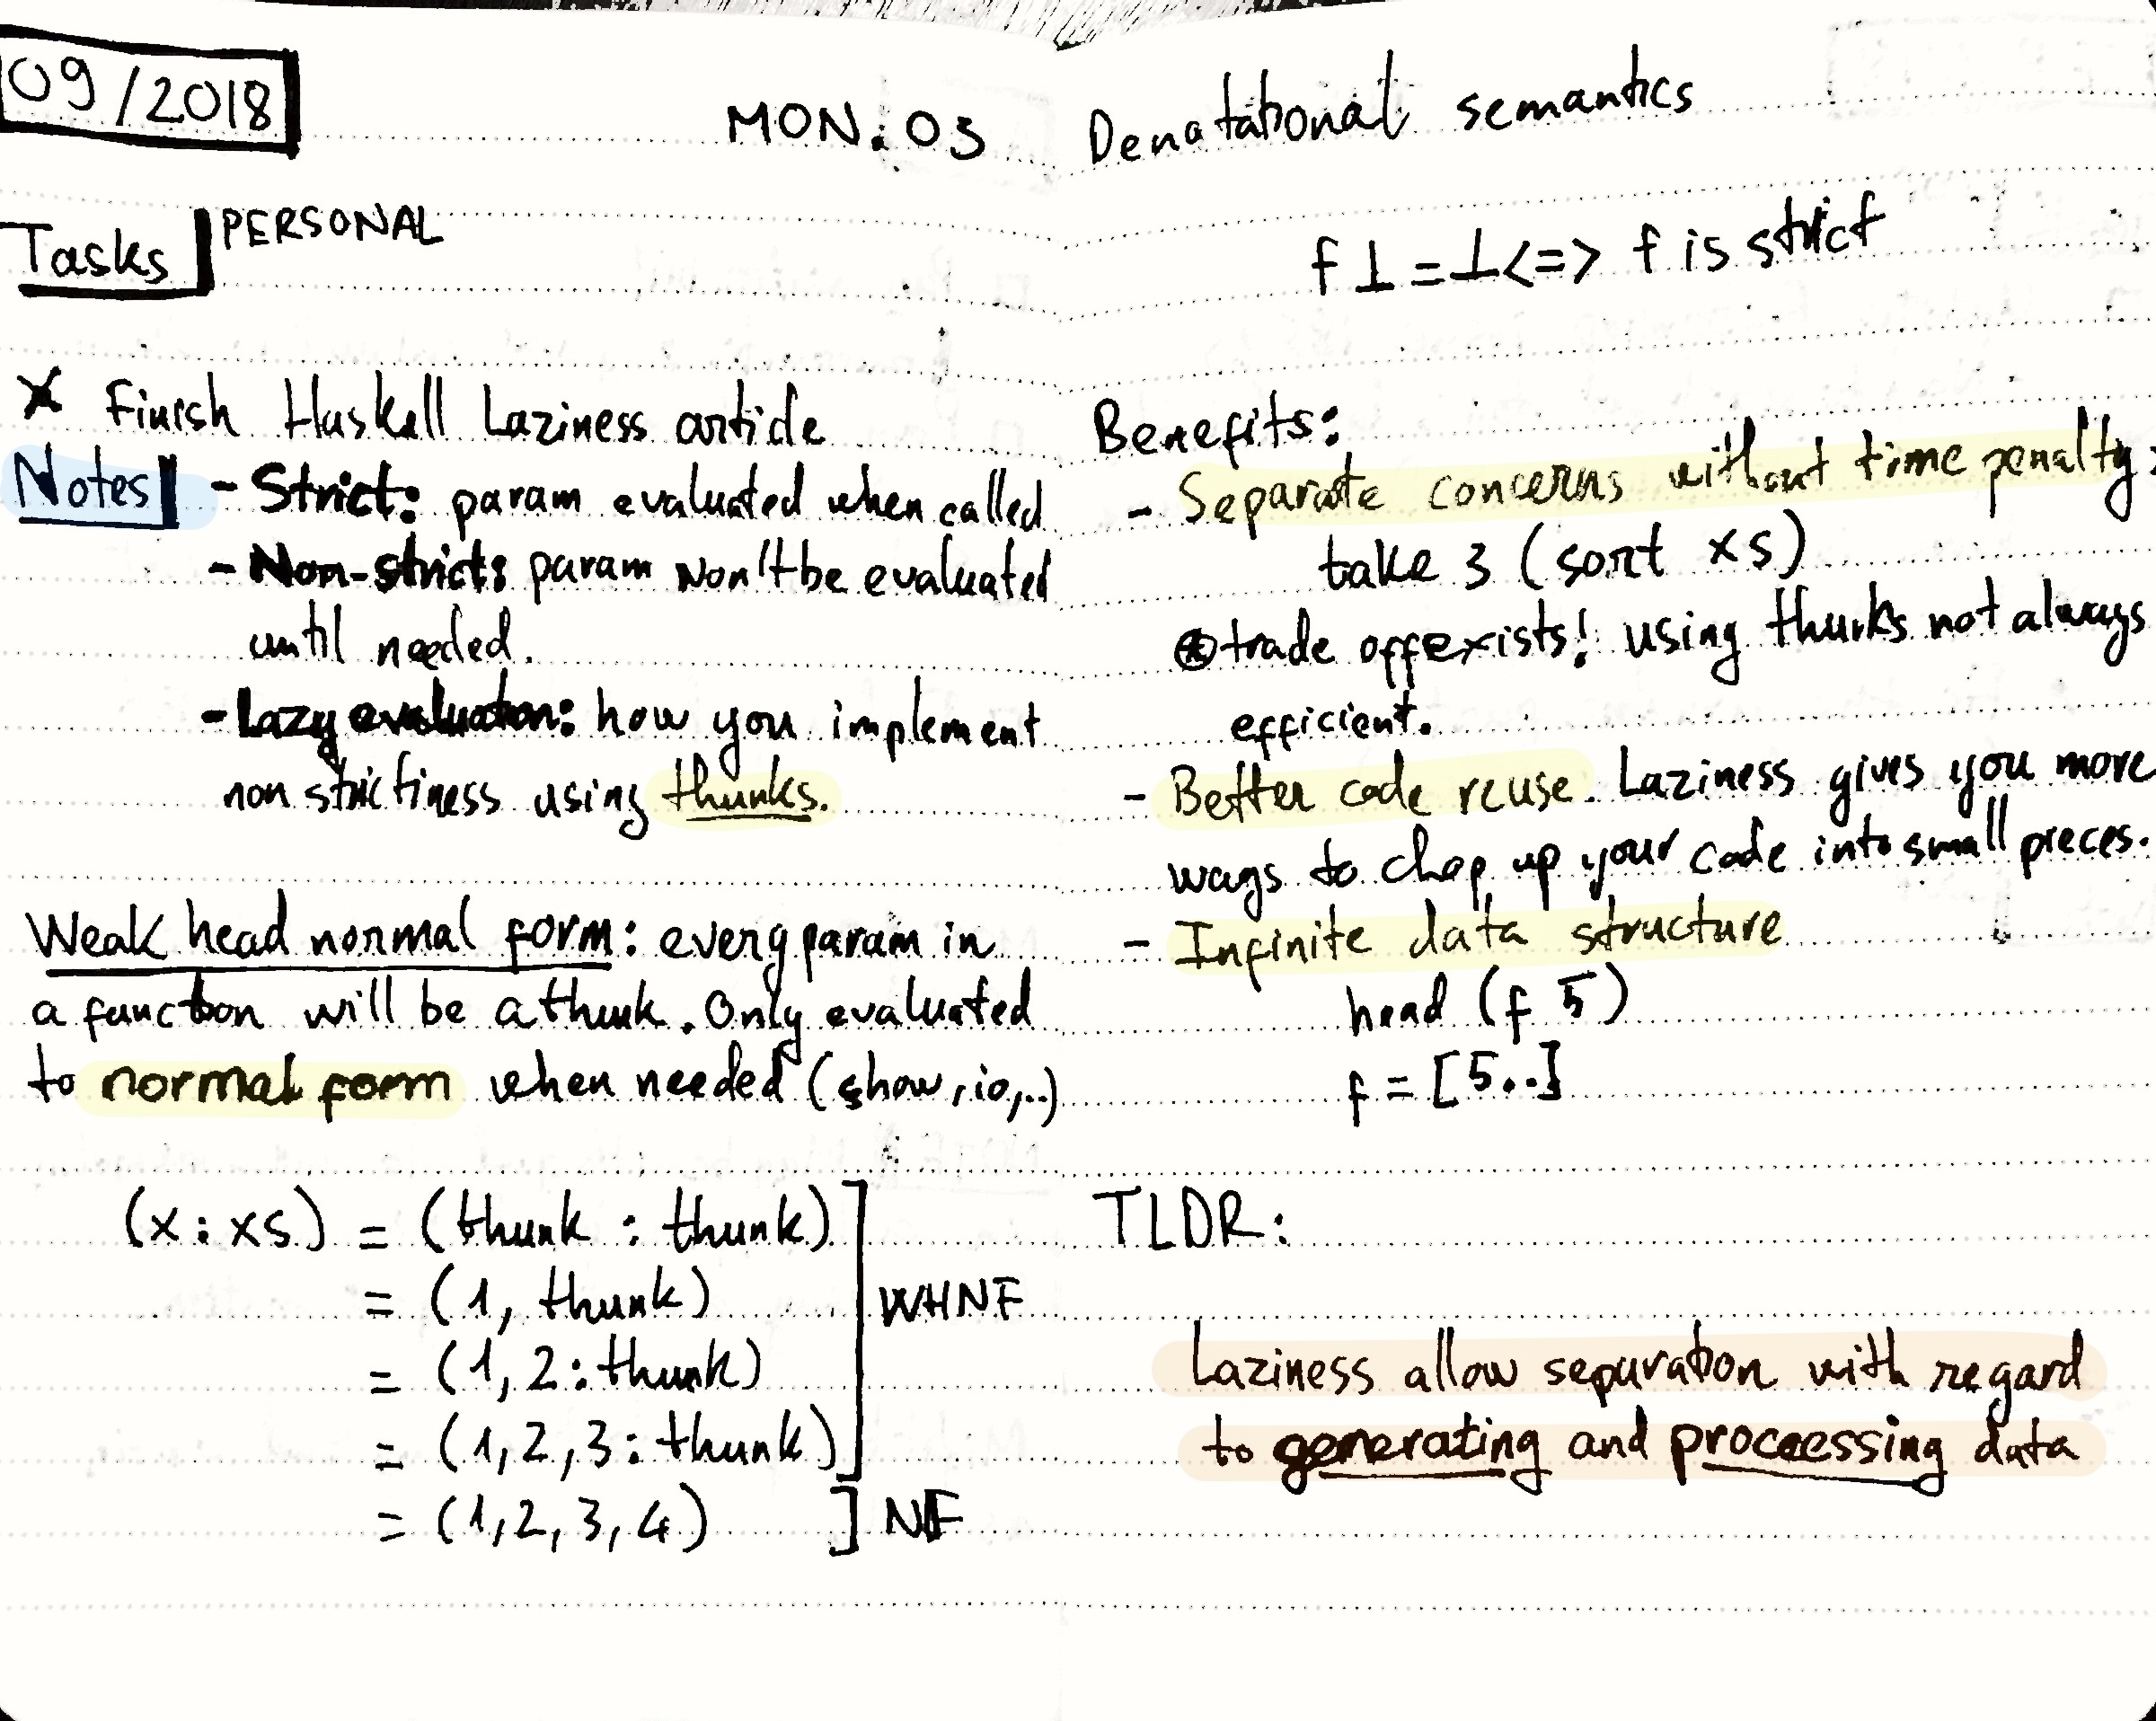 09/2018
MON. 03
Tasks PERSONAL
x Finish Haskell Laziness article
Notes - Strict: param evaluated when called
- Non-strict: param won't be evaluated
until needed.
- Lazy evaluation: how you implement
non strictiness using thunks.
Weak head normal form: every param in
a function will be a thunk. Only evaluated
to normal form when needed (show, io,..)
(x:xs) = (thunk : thunk)
= (1, thunk)
WHNF
= (1, 2: thunk)
= (1, 2, 3: thunk)
= (1, 2, 3, 4) ] NF
Denotational semantics
f ⊥ = ⊥ <=> f is strict
Benefits:
- Separate concerns without time penalty:
take 3 (sort xs)
⊛ trade off exists! using thunks not always
efficient.
- Better code reuse. Laziness gives you more
ways to chop up your code into small pieces.
- Infinite data structure
head (f 5)
f = [5..]
TLDR:
Laziness allow separation with regard
to generating and proccessing data